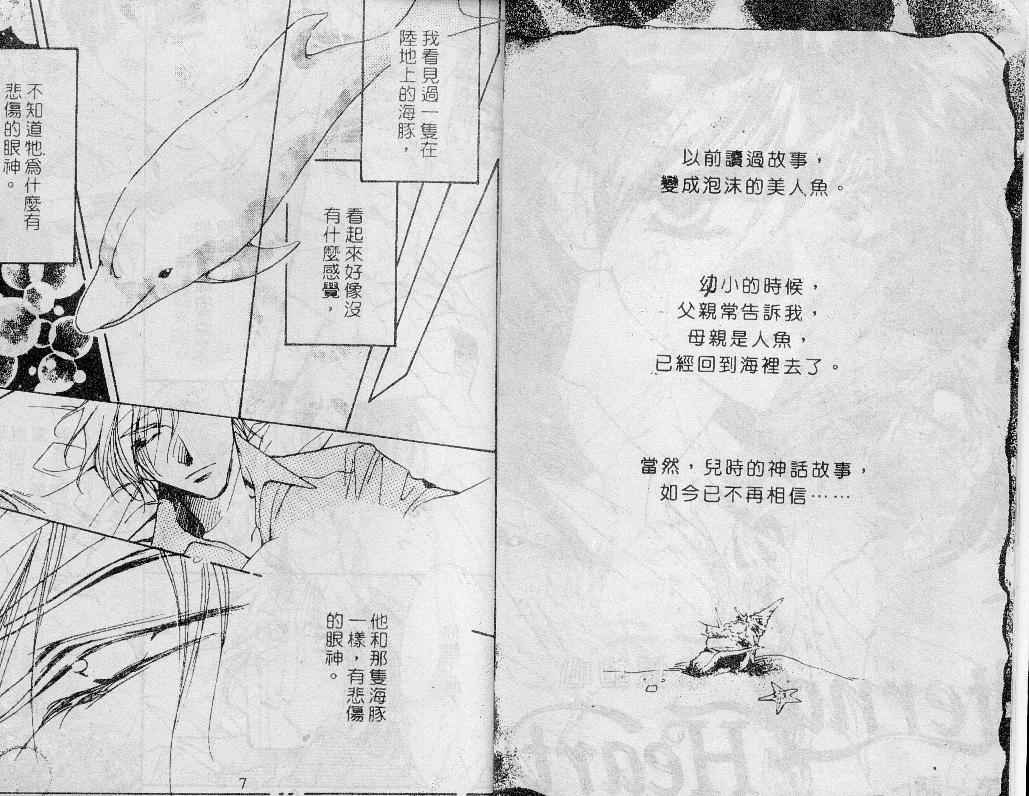 以前讀過故事，
變成泡沫的美人魚。
幼小的時候，
父親常告訴我，
母親是人魚，
已經回到海裡去了。
當然，兒時的神話故事，
如今已不再相信……
我看見過一隻在
陸地上的海豚，
看起來好像沒
有什麼感覺，
不知道牠為什麼有
悲傷的眼神。
他和那隻海豚
一樣，有悲傷
的眼神。
7